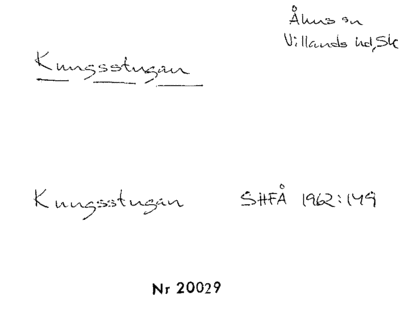 Åhus sn
Villands hd, Sk
Kungsstugan
Kungsstugan SHFÅ 1962:149
Nr 20029